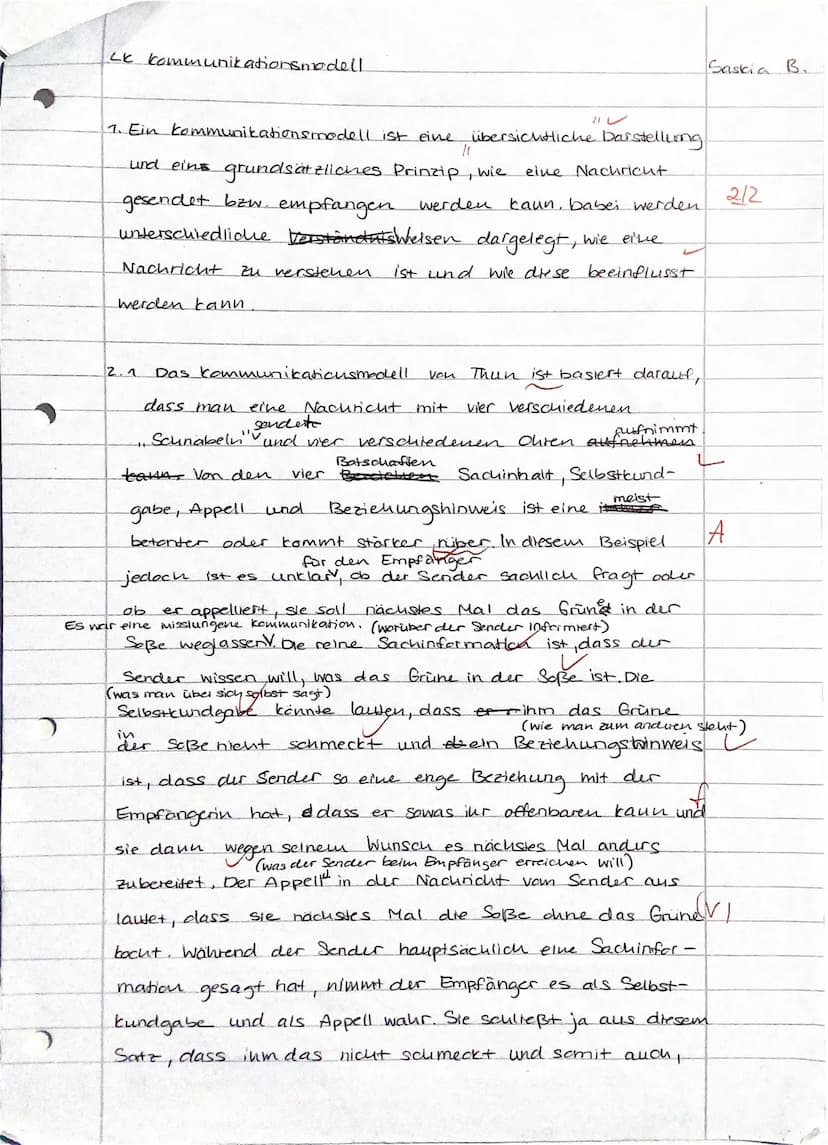 LK Kommunikationsmodell
Saskia B.
1. Ein Kommunikationsmodell ist eine übersichtliche Darstellung
und eins grundsätzliches Prinzip, wie eine Nachricht
gesendet bzw. empfangen werden kann. Dabei werden
2/2
unterschiedliche Verständnisweisen dargelegt, wie eine
Nachricht zu verstehen ist und wie diese beeinflusst
werden kann.
2.1 Das Kommunikationsmodell von Thun ist basiert darauf,
dass man eine Nachricht mit vier verschiedenen
sendet aufnimmt.
"Schnäbeln" und vier verschiedenen Ohren aufnehmen
Botschaften
kann. Von den vier Bereichen Sachinhalt, Selbstkund-
meist
gabe, Appell und Beziehungshinweis ist eine
betonter oder kommt stärker rüber. In diesem Beispiel
A
für den Empfänger
jedoch ist es unklar, ob der Sender sachlich fragt oder
ob er appelliert, sie soll nächstes Mal das Grüne in der
Es war eine misslungene Kommunikation. (worüber der Sender informiert)
Soße weglassen. Die reine Sachinformation ist, dass der
Sender wissen will, was das Grüne in der Soße ist. Die
(was man über sich selbst sagt)
Selbstkundgabe könnte lauten, dass er ihm das Grüne
(wie man zum anderen steht)
in
der Soße nicht schmeckt und ein Beziehungshinweis
ist, dass der Sender so eine enge Beziehung mit der
f
Empfängerin hat, dass er sowas ihr offenbaren kann und
sie dann wegen seinem Wunsch es nächstes Mal anders
(was der Sender beim Empfänger erreichen will)
zubereitet. Der Appell in der Nachricht vom Sender aus
lautet, dass sie nächstes Mal die Soße ohne das Grüne
kocht. Während der Sender hauptsächlich eine Sachinfor-
mation gesagt hat, nimmt der Empfänger es als Selbst-
kundgabe und als Appell wahr. Sie schließt ja aus diesem
Satz, dass ihm das nicht schmeckt und somit auch,